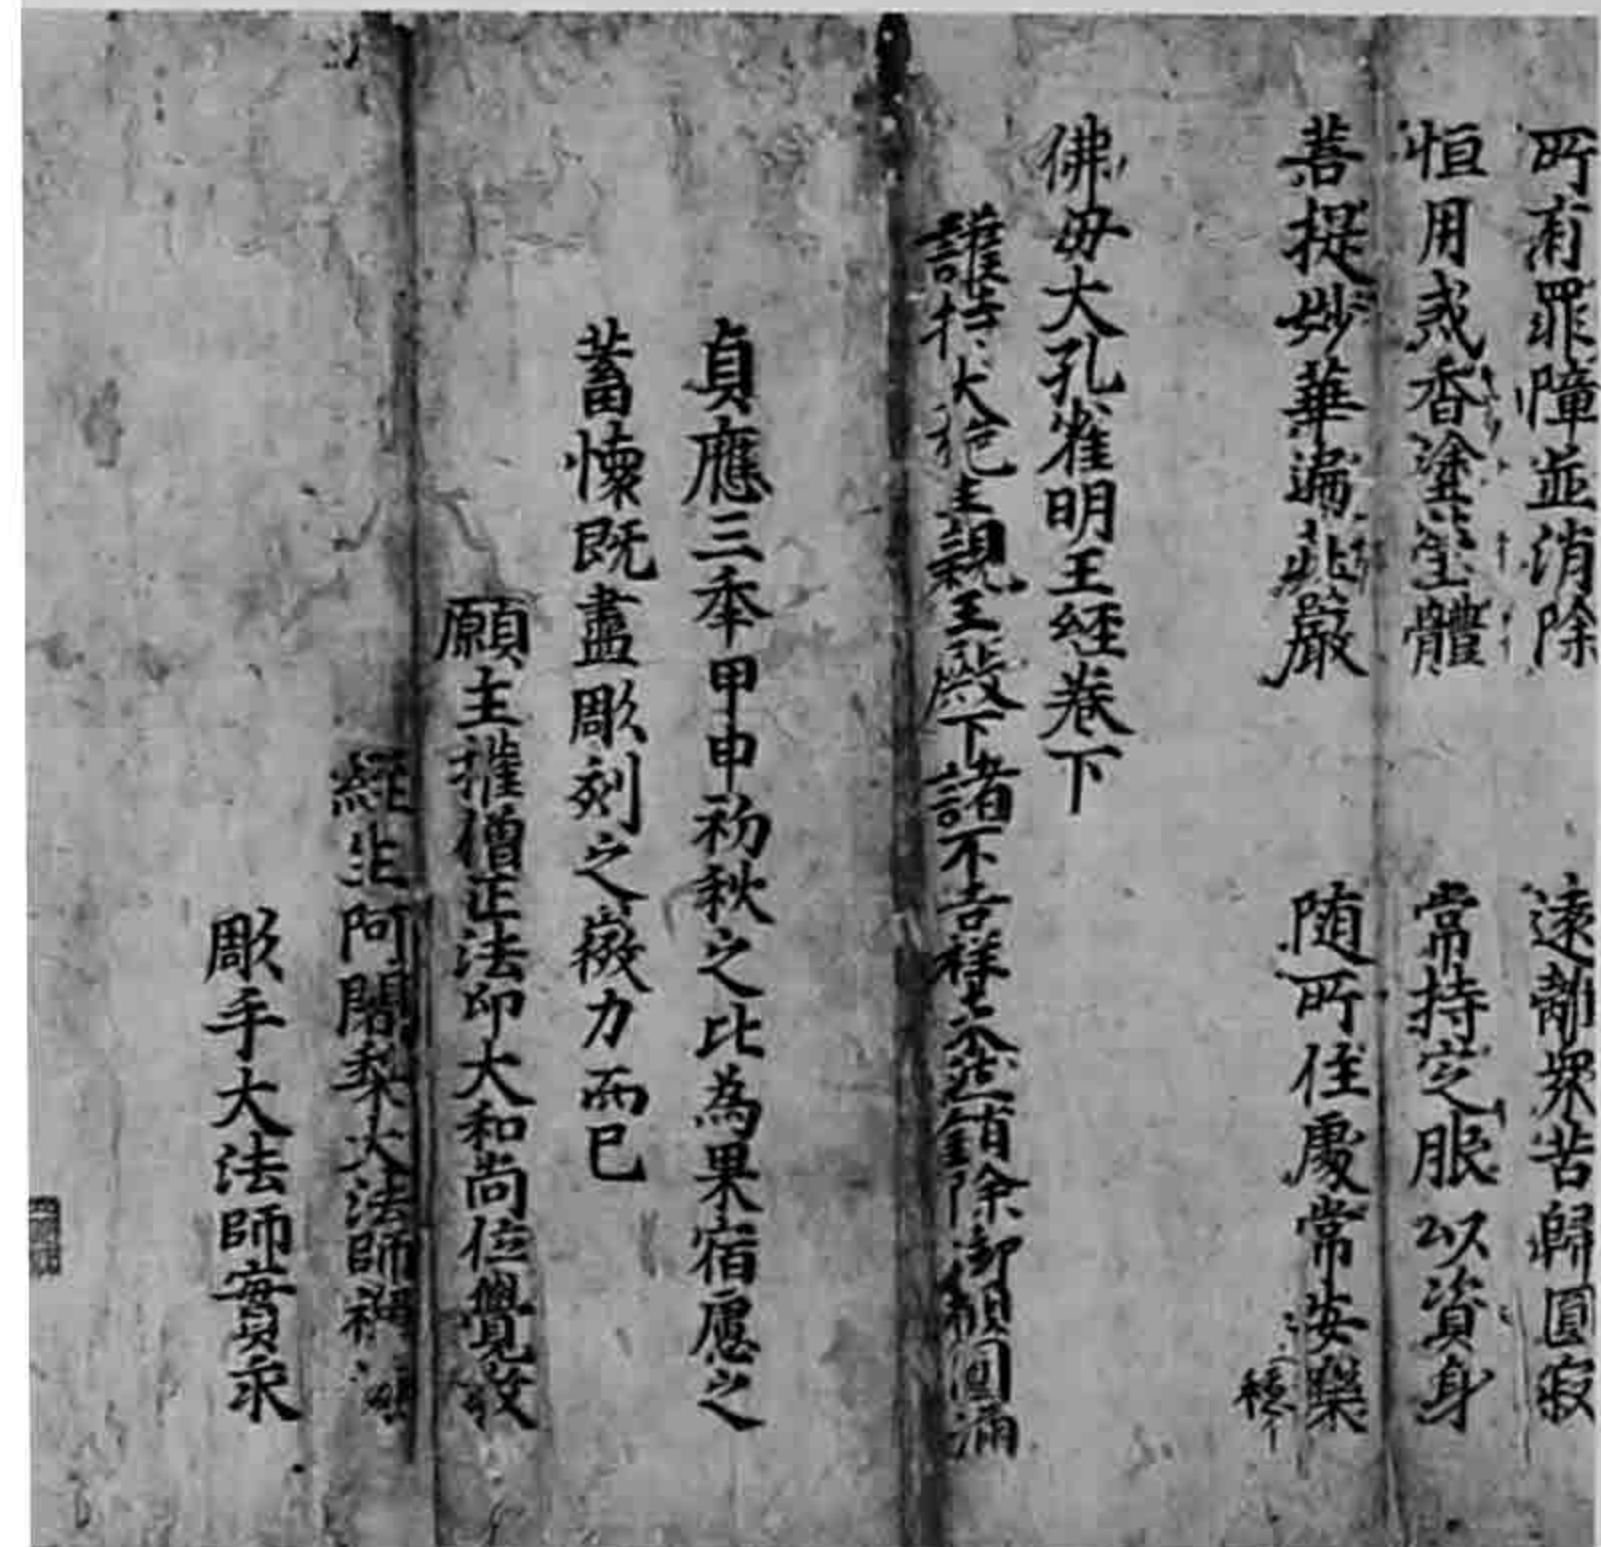 所有罪障並消除 遠離衆苦歸圓寂
恒用戒香塗瑩體 常持定服以資身
菩提妙華遍莊嚴 随所住處常安樂
佛母大孔雀明王經卷下
護持大施主親王殿下諸不吉祥悉銷除御願圓滿
貞應三年甲申初秋之比為果宿願之
蓄懐既盡彫刻之微力而已
願主権僧正法印大和尚位覺教
經生阿闍梨大法師
彫手大法師實眾